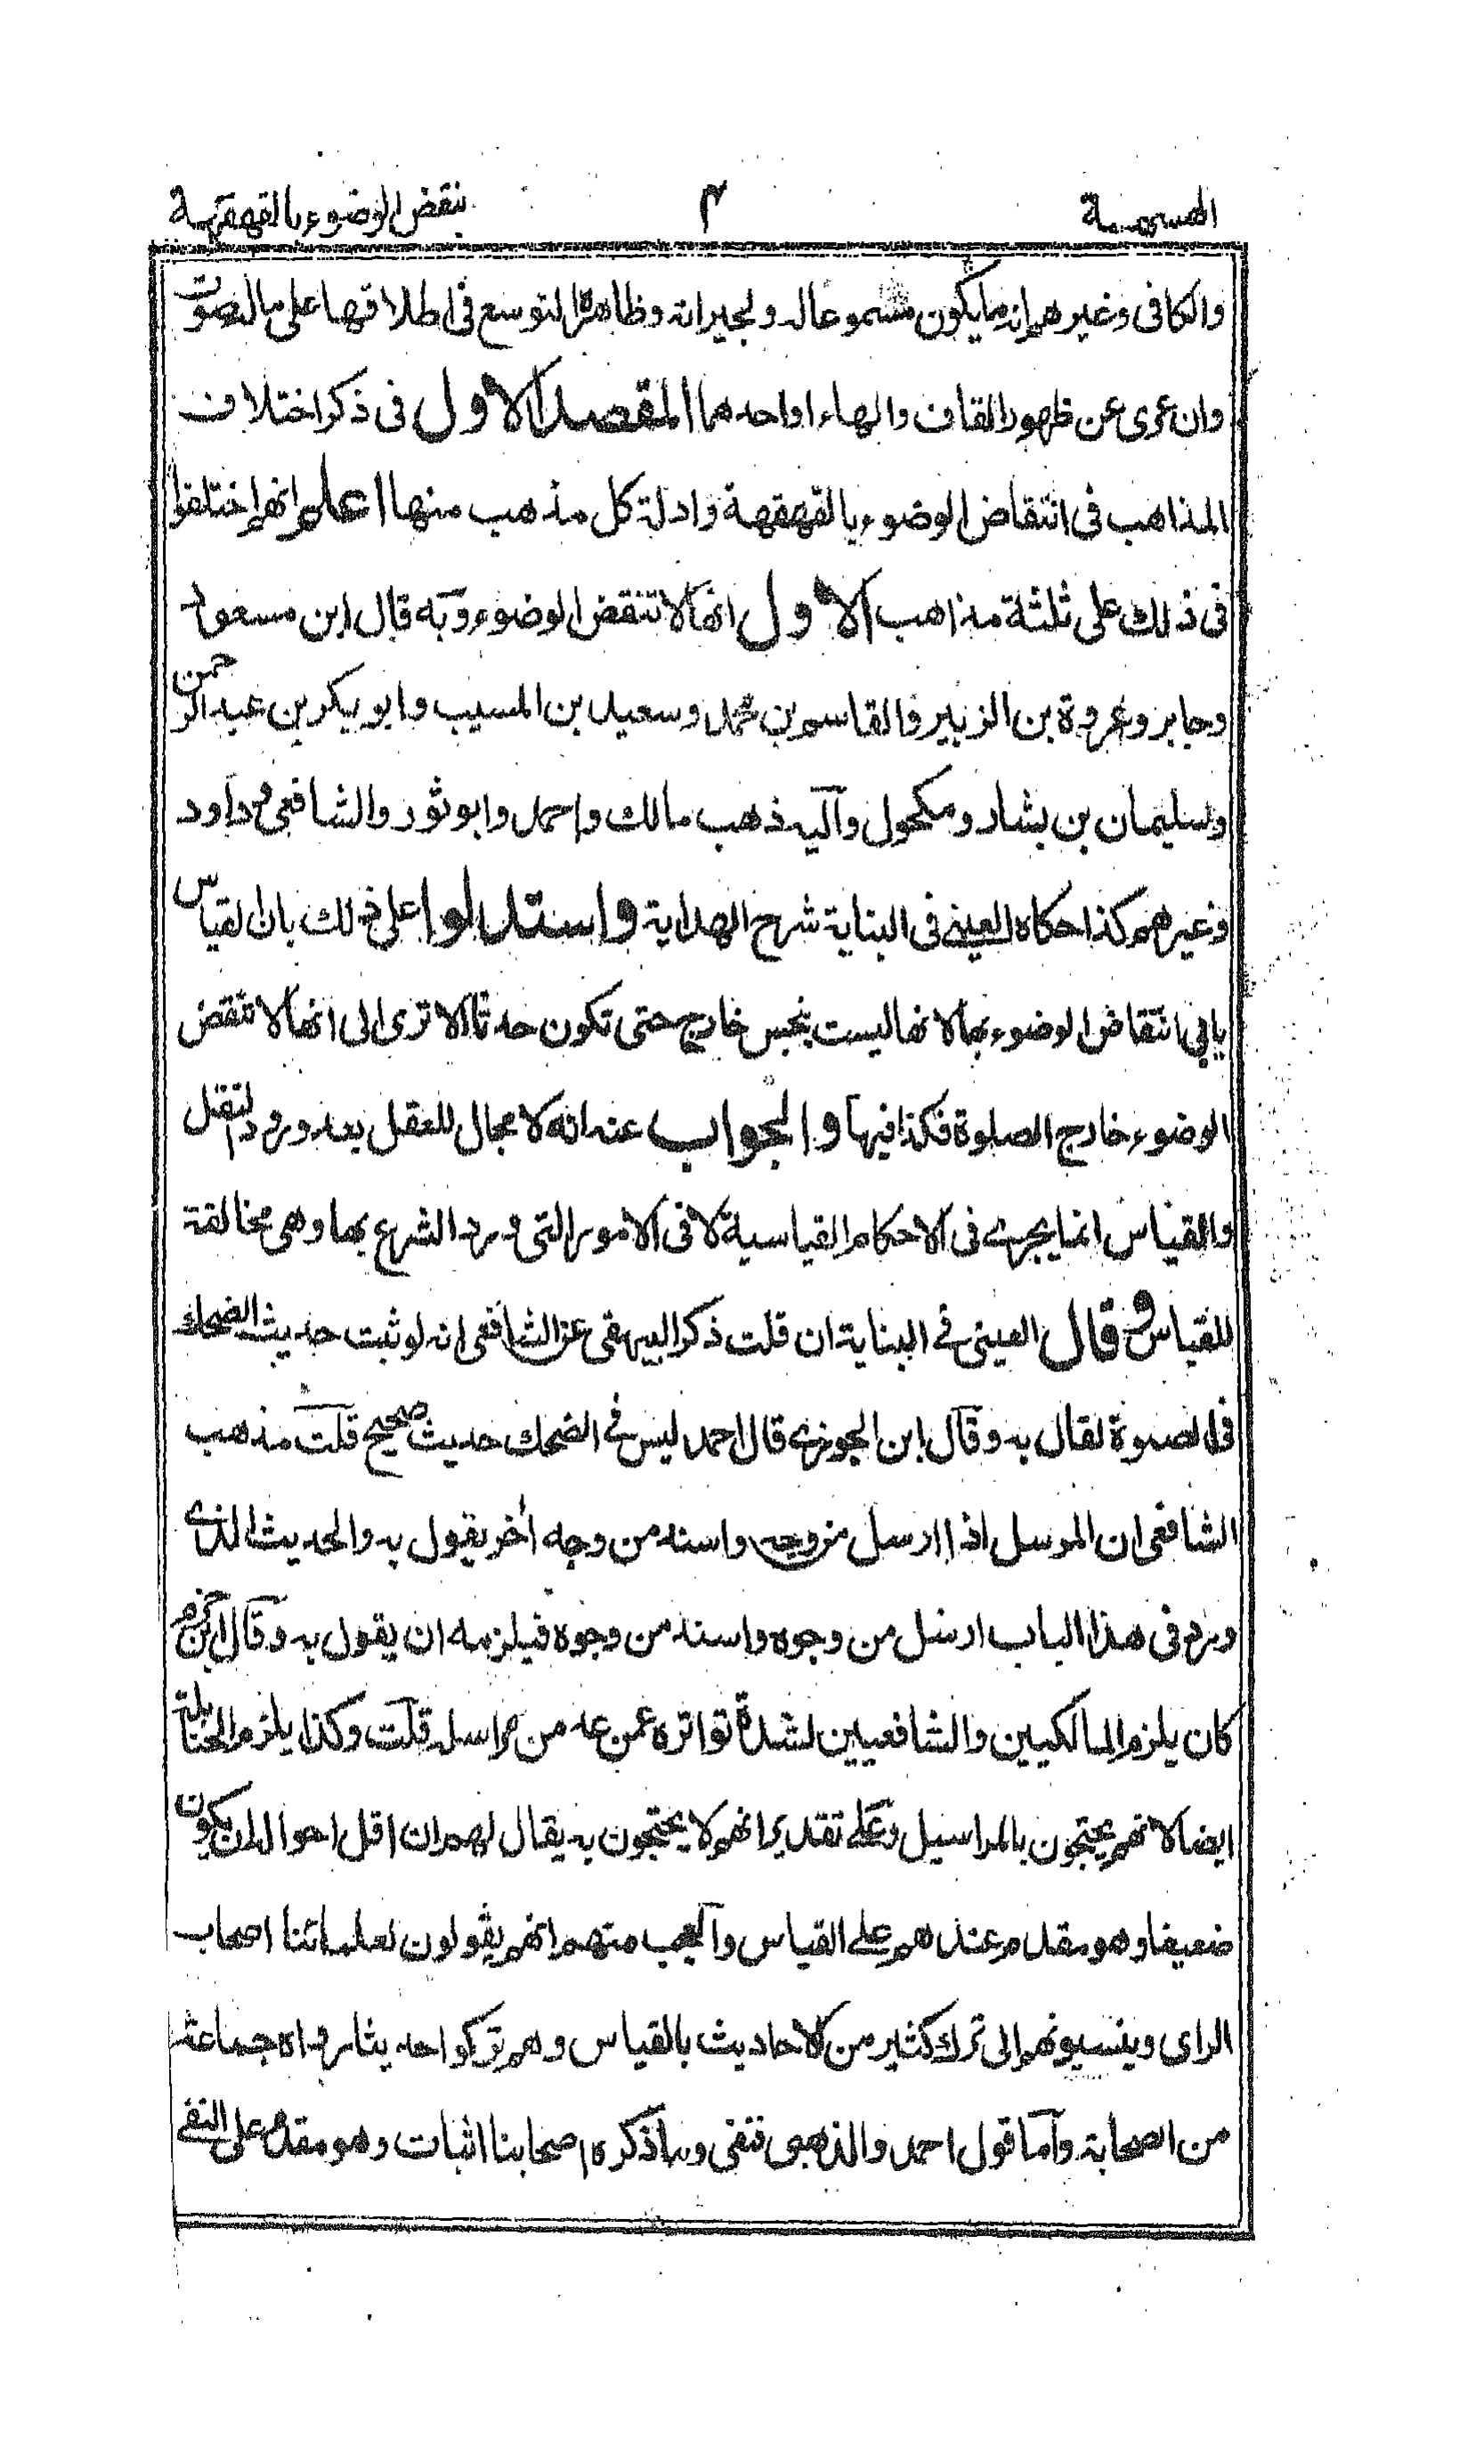 الهسهسة ٣ بنقض الوضوء بالقهقهة
والكافى وغيرهم انه ما يكون مسموعا له ولجيرانه وظاهره التوسع فى اطلاقها على ما له صوت
وان عرى عن ظهور القاف والهاء او احدهما المقصد الاول فى ذكر اختلاف
المذاهب فى انتقاض الوضوء بالقهقهة وادلة كل مذهب منها اعلم انهم اختلفوا
فى ذلك على ثلثة مذاهب الاول انها لا تنقض الوضوء وبه قال ابن مسعود
وجابر وعروة بن الزبير والقاسم بن محمد وسعيد بن المسيب وابو بكر بن عبد الرحمن
وسليمان بن يشار ومكحول واليه ذهب مالك واحمد وابو ثور والشافعى وداود
وغيرهم كذا حكاه العينى فى البناية شرح الهداية واستدلوا على ذلك بان القياس
يابى انتقاض الوضوء بها لانها ليست بنجس خارج حتى تكون حدثا الا ترى الى انها لا تنقض
الوضوء خارج الصلوة فكذا فيها والجواب عنه انه لا مجال للعقل بعد ورود النقل
والقياس انما يجرے فى الاحكام القياسية لا فى الامور التى ورد الشرع بها وهى مخالفة
للقياس وقال العينى فے البناية ان قلت ذكر البيهقى عن الشافعى انه لو ثبت حديث الضحك
فى الصلوة لقال به وقال ابن الجوزے قال احمد ليس فے الضحك حديث صحيح قلت مذهب
الشافعى ان المرسل اذا ارسل من وجه واسند من وجه أخر يقول به والحديث الذے
ورد فى هذا الباب ارسل من وجوه واسند من وجوه فيلزمه ان يقول به وقال ابن حزم
كان يلزم المالكيين والشافعيين لشدة تواتره عمن عد من مراسله قلت وكذا يلزم الحنابلة
ايضا لانهم يحتجون بالمراسيل وعلے تقدير انهم لا يحتجون به يقال لهم ان اقل احواله ان يكون
ضعيفا وهو مقدم عندهم علے القياس والعجب منهم انهم يقولون لعلمائنا اصحاب
الراى وينسبونهم الى ترك كثير من الاحاديث بالقياس وهم تركوا حديثا رواه جماعة
من الصحابة واما قول احمد والذهبى فنفى وما ذكره اصحابنا اثبات وهو مقدم على النفے